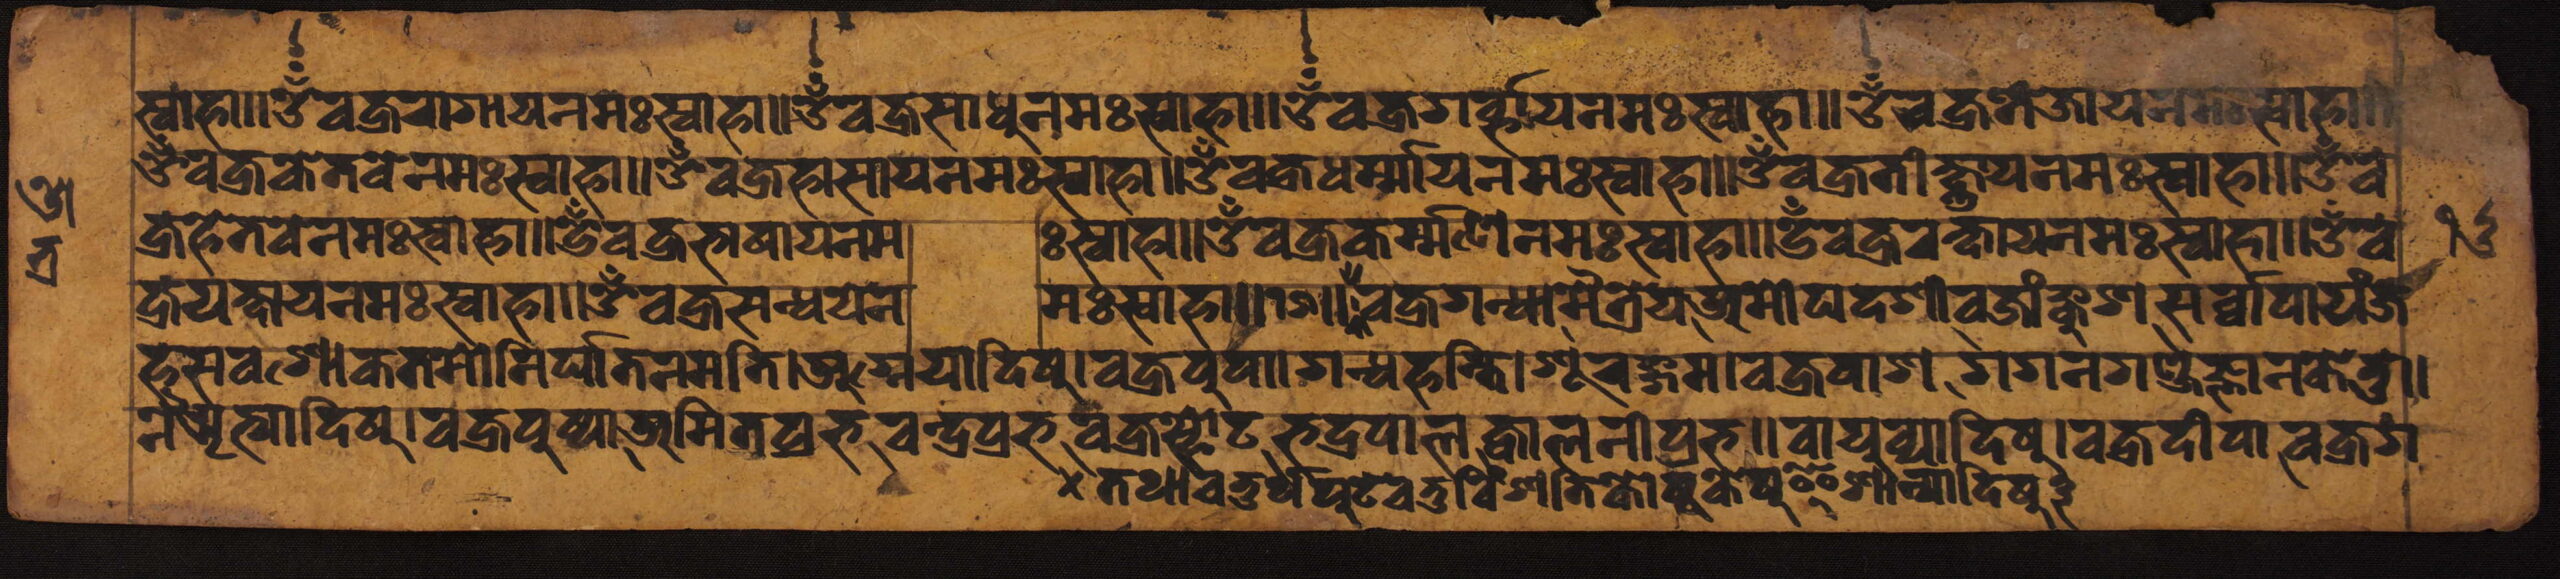 स्वाहा॥ ॐ वज्ररागाय नमः स्वाहा॥ ॐ वज्रसाधु नमः स्वाहा॥ ॐ वज्रगर्भाय नमः स्वाहा॥ ॐ वज्रतेजाय नमः स्वाहा॥
ॐ वज्रकेतवे नमः स्वाहा॥ ॐ वज्रहासाय नमः स्वाहा॥ ॐ वज्रधर्म्माय नमः स्वाहा॥ ॐ वज्रतीक्ष्णाय नमः स्वाहा॥ ॐ व
ज्रहेतवे नमः स्वाहा॥ ॐ वज्रभाषाय नमः स्वाहा॥ ॐ वज्रकर्म्मणे नमः स्वाहा॥ ॐ वज्ररक्षाय नमः स्वाहा॥ ॐ व
ज्रयक्षाय नमः स्वाहा॥ ॐ वज्रसन्धये नमः स्वाहा॥ वज्रगन्धा मैत्रेय अमोघदर्शी वज्रांकुश सर्व्वापायंज
ह सर्वशोकतमोनिर्घातनमति। अग्नेयादिषु। वज्रधुपा। गन्धहस्ति। शूरङ्गम। वज्रपाश गगनगञ्ज ज्ञानकेतु।
नैऋत्यादिषु। वज्रपुष्पा अमितप्रभ चन्द्रप्रभ वज्रस्फोट भद्रपाल ज्वालनीप्रभ॥ वायुव्यादिषु। वज्रदीपा वज्रग
तथा चतुर्थपुटे चतुर्विंशतिकोष्ठकेषु ईशान्यादिषु
१३